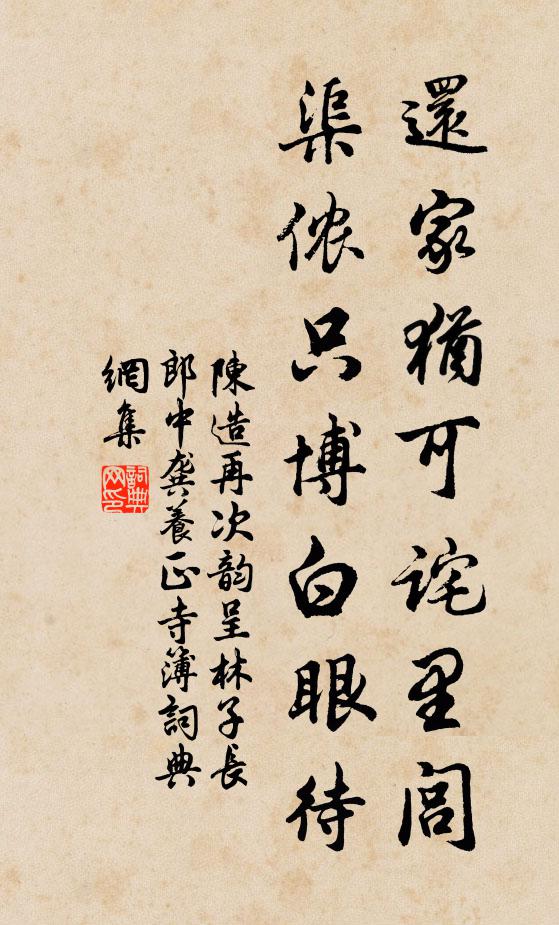 還家猶可詫里閭
渠侬只博白眼待
陳造再次韵呈林子長
郎中龚養正寺簿詞典
網集
詞典网印